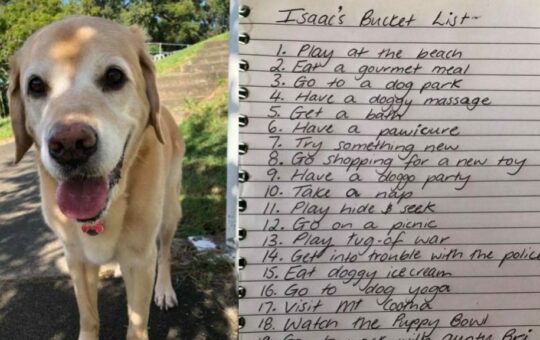 Isaac's Bucket List~
1. Play at the beach
2. Eat a gourmet meal
3. Go to a dog park
4. Have a doggy massage
5. Get a bath
6. Have a pawicure
7. Try something new
8. Go shopping for a new toy
9. Have a doggo party
10. Take a nap
11. Play hide & seek
12. Go on a picnic
13. Play tug-of war
14. Get into trouble with the police
15. Eat doggy icecream
16. Go to dog yoga
17. Visit Mt Cootha
18. Watch the Puppy Bowl
19. Go to work with aunty Bri